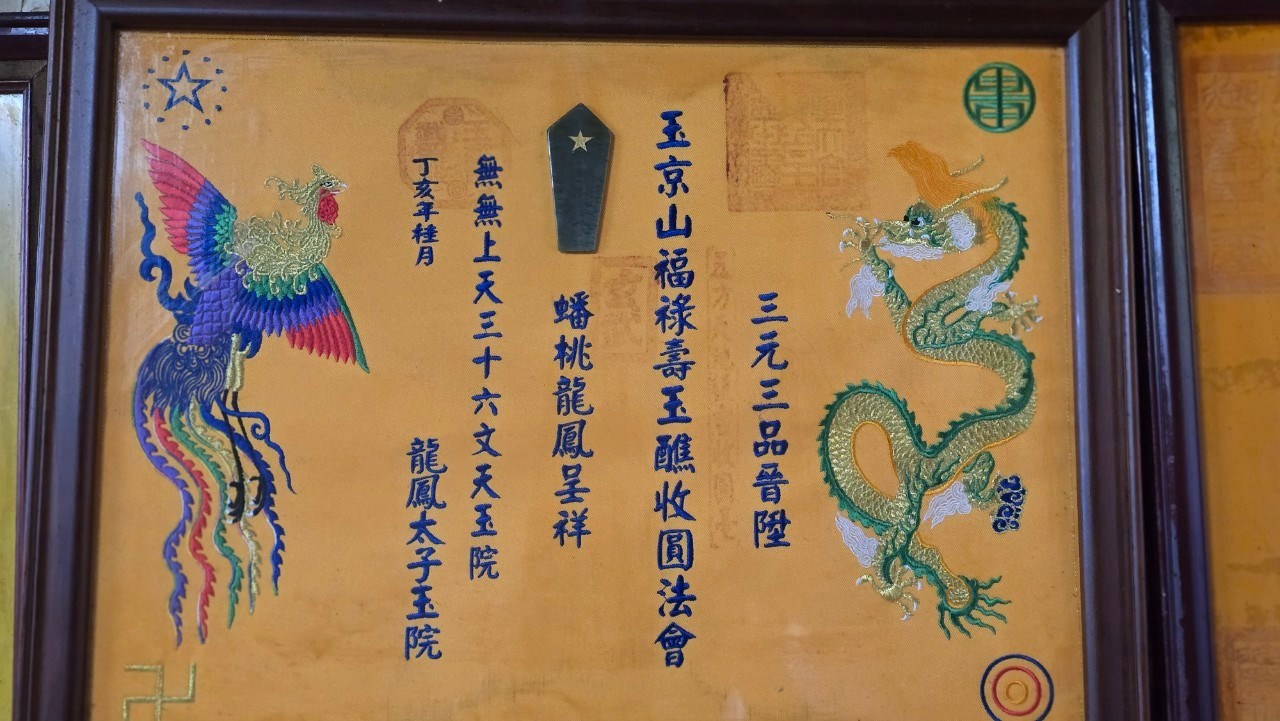 三元三品晉陞
玉京山福祿壽玉醮收圓法會
蟠桃龍鳳呈祥
無無上天三十六文天玉院
龍鳳太子玉院
丁亥年桂月